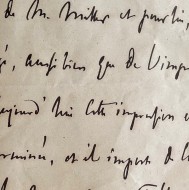 de M. Müller et pour lui,
é, aussi bien que de l'imp
aujourd'hui cette impression
terminée, et il importe de l